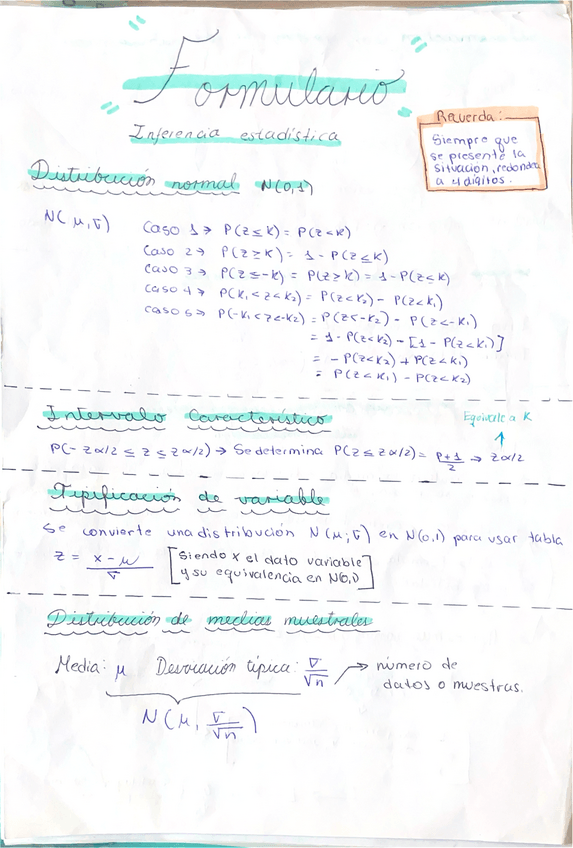 Formulario
Inferencia estadística
Recuerda:
Siempre que
se presente la
situación, redondea
a 4 dígitos.
Distribución normal N(0,1)
N(μ,σ)
Caso 1→ P(z≤K) = P(z<K)
Caso 2→ P(z≥K) = 1 - P(z≤K)
Caso 3→ P(z≤-K) = P(z≥K) = 1-P(z<K)
Caso 4→ P(K₁<z<K₂) = P(z<K₂) - P(z<K₁)
Caso 5→ P(-K₁<z<-K₂) = P(z<-K₂) - P(z<-K₁)
= 1-P(z<K₂) - [1 - P(z<K₁)]
= -P(z<K₂) + P(z<K₁)
= P(z<K₁) - P(z<K₂)
Intervalo Característico
Equivale a K
P(-zα/2 ≤ z ≤ zα/2) → Se determina P(z≤zα/2) = p+1/2 → zα/2
Tipificación de variable
Se convierte una distribución N(μ,σ) en N(0,1) para usar tabla
z = x-μ/σ [Siendo x el dato variable
y su equivalencia en N(0,1)]
Distribución de medias muestrales
Media: μ Desviación típica: σ/√n → número de
datos o muestras.
N(μ, σ/√n)